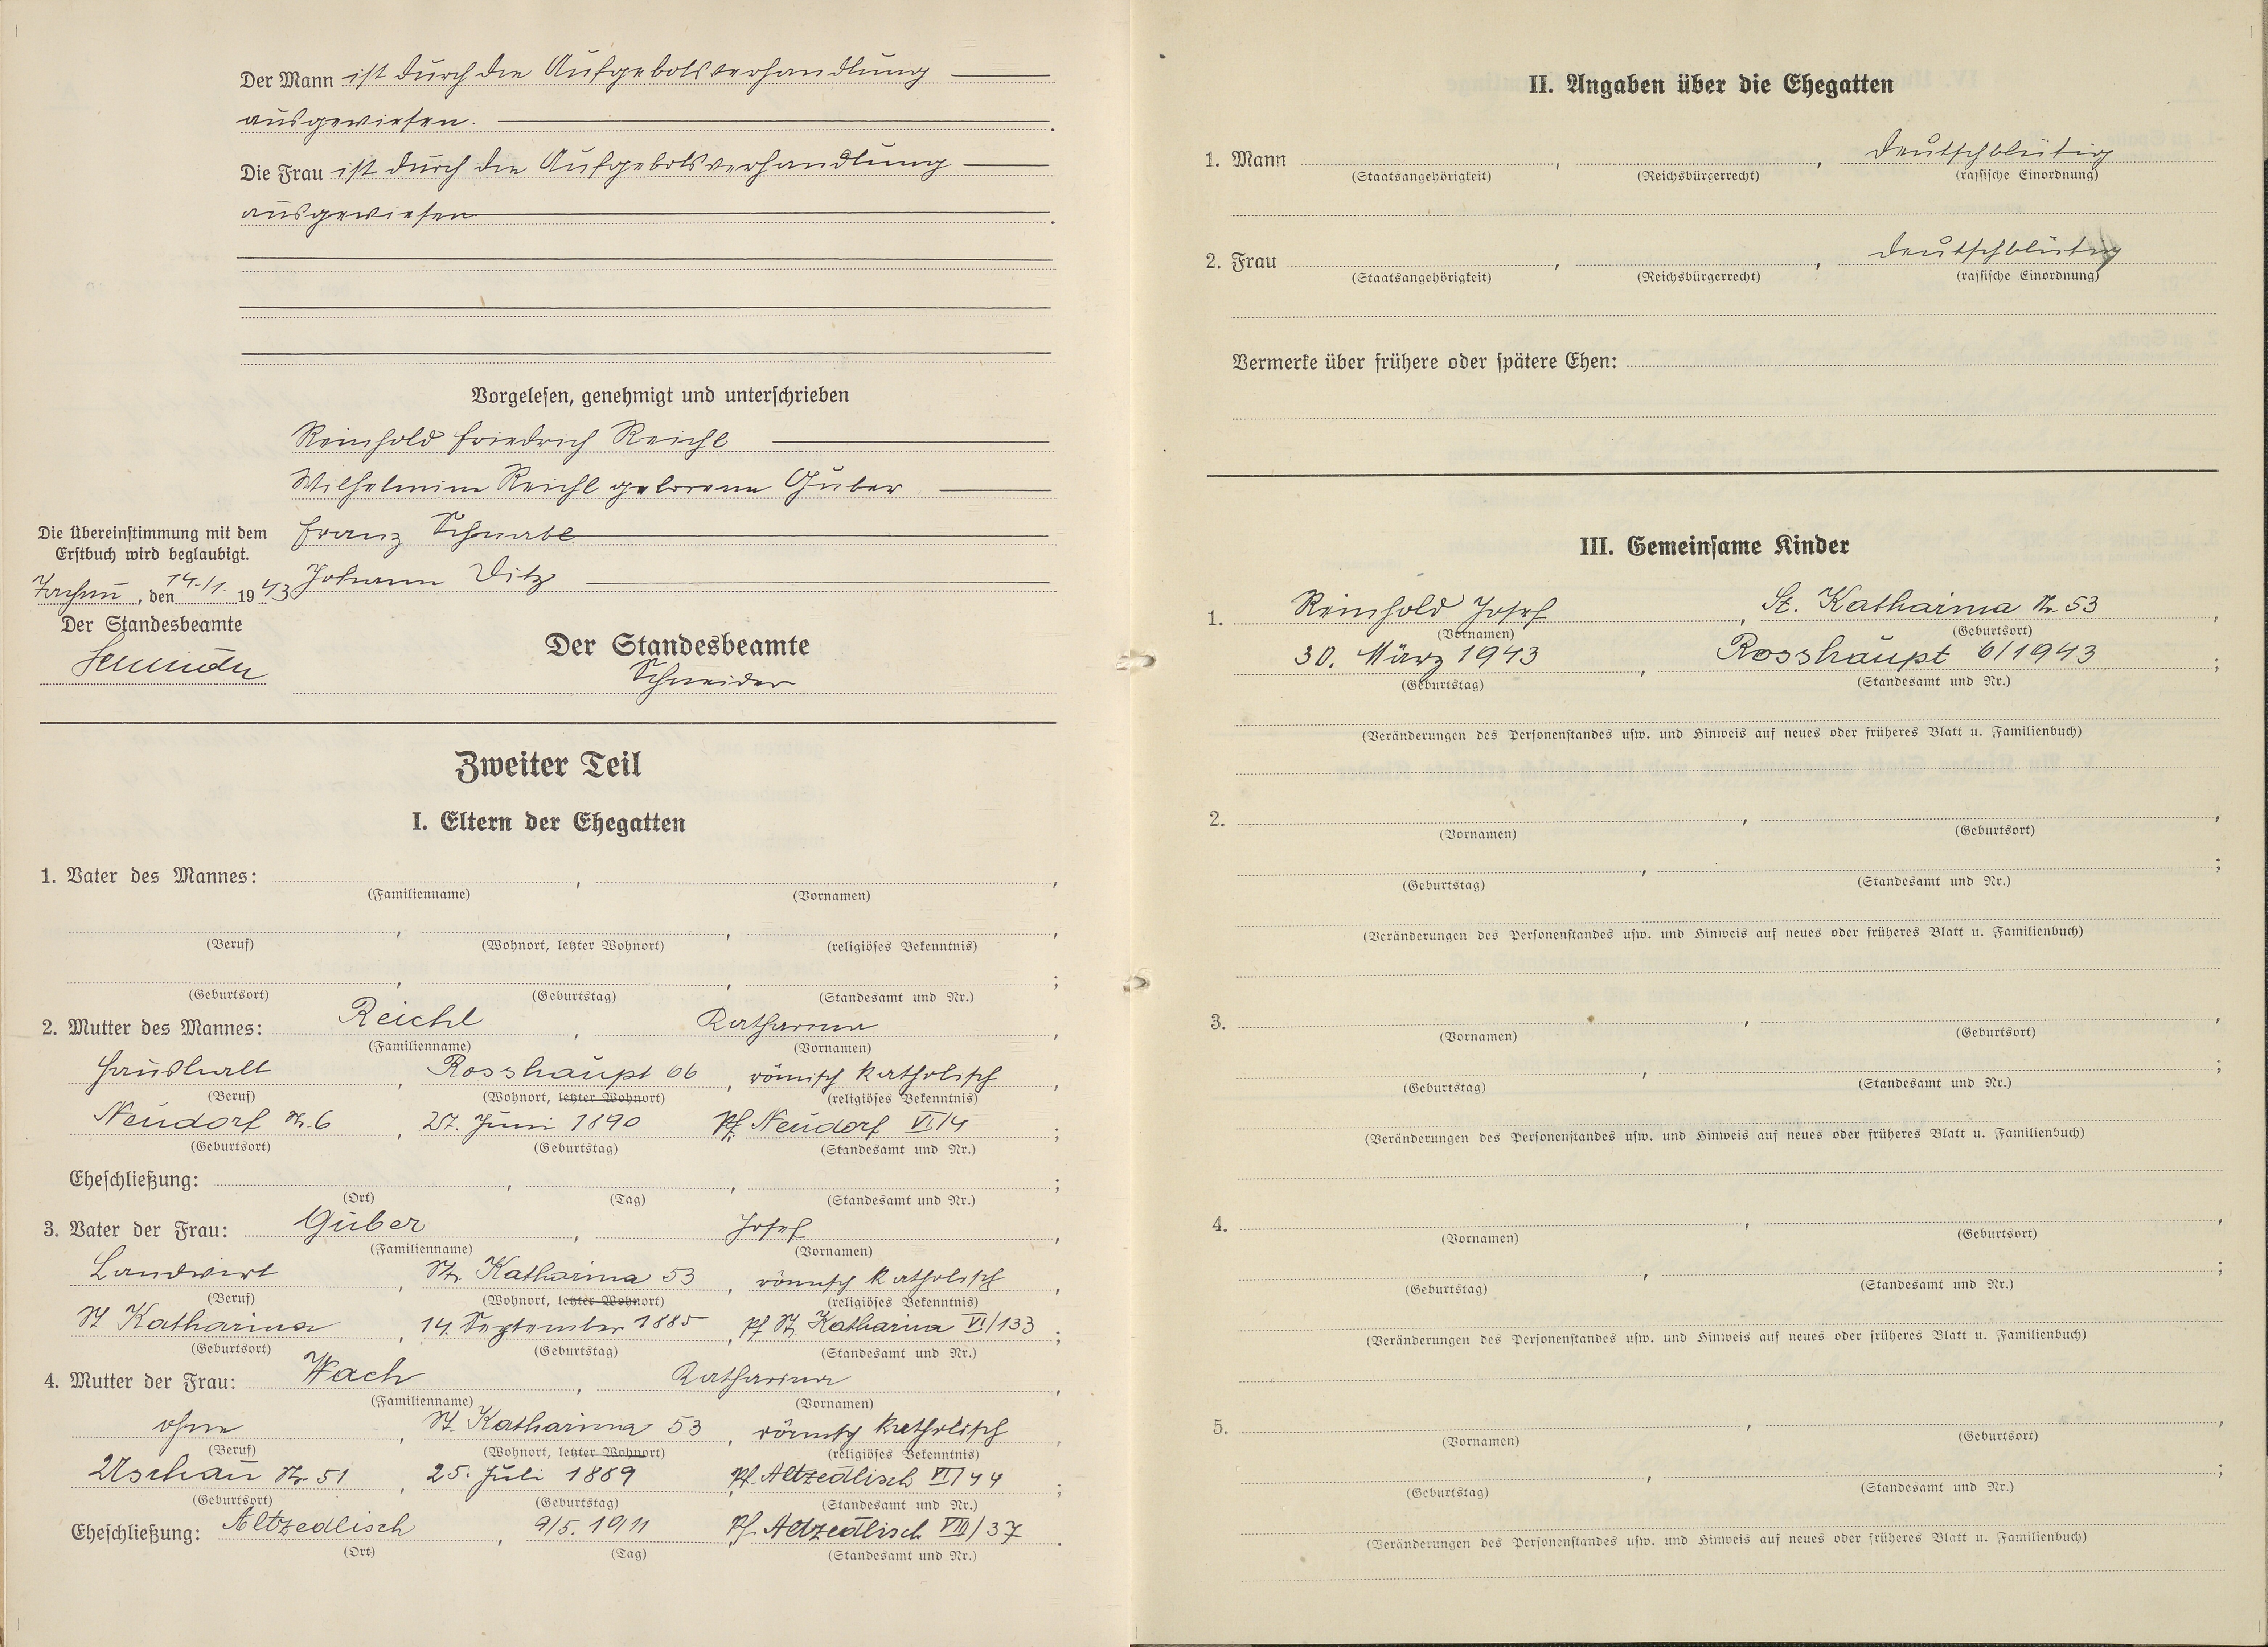 Der Mann ist durch die Aufgebotsverhandlung
ausgewiesen.
Die Frau ist durch die Aufgebotsverhandlung
ausgewiesen
Vorgelesen, genehmigt und unterschrieben
Reinhold Friedrich Reichl
Wilhelmine Reichl geborene Guber
Franz Schnabl
Johann Ditz
Die Übereinstimmung mit dem
Erstbuch wird beglaubigt.
Tachau, den 14./1. 1943
Der Standesbeamte
Schneider
Der Standesbeamte
Schneider
Zweiter Teil
I. Eltern der Ehegatten
1. Vater des Mannes: , ,
(Familienname) (Vornamen)
(Beruf) (Wohnort, letzter Wohnort) (religiöses Bekenntnis)
(Geburtsort) (Geburtstag) (Standesamt und Nr.)
2. Mutter des Mannes: Reichl , Katharina ,
(Familienname) (Vornamen)
Haushalt , Rosshaupt 66 , römisch katholisch ,
(Beruf) (Wohnort, letzter Wohnort) (religiöses Bekenntnis)
Neudorf Nr. 6 , 27. Juni 1890 Pf. Neudorf VI/4 ;
(Geburtsort) (Geburtstag) (Standesamt und Nr.)
Eheschließung: , , ;
(Ort) (Tag) (Standesamt und Nr.)
3. Vater der Frau: Guber , Josef ,
(Familienname) (Vornamen)
Landwirt , St. Katharina 53 , römisch katholisch ,
(Beruf) (Wohnort, letzter Wohnort) (religiöses Bekenntnis)
St. Katharina , 14. September 1885 , Pf. St. Katharina VI/133 ;
(Geburtsort) (Geburtstag) (Standesamt und Nr.)
4. Mutter der Frau: Wach , Katharina ,
(Familienname) (Vornamen)
ohne , St. Katharina 53 , römisch katholisch ,
(Beruf) (Wohnort, letzter Wohnort) (religiöses Bekenntnis)
Uschau Nr. 51 , 25. Juli 1889 Pf. Altzedlisch VI/44 ;
(Geburtsort) (Geburtstag) (Standesamt und Nr.)
Eheschließung: Altzedlisch , 9/5. 1911 Pf. Altzedlisch VIII/37 .
(Ort) (Tag) (Standesamt und Nr.)
II. Angaben über die Ehegatten
1. Mann , , deutschblütig
(Staatsangehörigkeit) (Reichsbürgerrecht) (rassische Einordnung)
2. Frau , , deutschblütig
(Staatsangehörigkeit) (Reichsbürgerrecht) (rassische Einordnung)
Vermerke über frühere oder spätere Ehen:
III. Gemeinsame Kinder
1. Reinhold Josef , St. Katharina Nr. 53 ,
(Vornamen) (Geburtsort)
30. März 1943 , Rosshaupt 6/1943 ;
(Geburtstag) (Standesamt und Nr.)
(Veränderungen des Personenstandes usw. und Hinweis auf neues oder früheres Blatt u. Familienbuch)
2. , ,
(Vornamen) (Geburtsort)
(Geburtstag) (Standesamt und Nr.)
(Veränderungen des Personenstandes usw. und Hinweis auf neues oder früheres Blatt u. Familienbuch)
3. , ,
(Vornamen) (Geburtsort)
(Geburtstag) (Standesamt und Nr.)
(Veränderungen des Personenstandes usw. und Hinweis auf neues oder früheres Blatt u. Familienbuch)
4. , ,
(Vornamen) (Geburtsort)
(Geburtstag) (Standesamt und Nr.)
(Veränderungen des Personenstandes usw. und Hinweis auf neues oder früheres Blatt u. Familienbuch)
5. , ,
(Vornamen) (Geburtsort)
(Geburtstag) (Standesamt und Nr.)
(Veränderungen des Personenstandes usw. und Hinweis auf neues oder früheres Blatt u. Familienbuch)